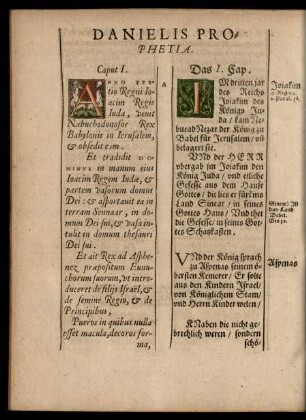 DANIELIS PRO-
PHETIA.
Caput I.
ANNO TER-
tio Regni Ioacim
Regis
Iuda, venit
Nabuchodonosor Rex
Babylonis in Ierusalem,
& obsedit eam.
Et tradidit DO-
MINUS in manum eius
Ioacim Regem Iuda, &
partem vasorum domus
Dei: & asportauit ea in
terram Sennaar, in do-
mum Dei sui, & vasa in-
tulit in domum thesauri
Dei sui.
Et ait Rex ad Asphe-
nez præpositum Eunu-
chorum suorum, vt intro-
duceret de filijs Israël, &
de semine Regio, & de
Principibus,
Pueros in quibus nulla
esset macula, decoros for-
ma,
A
Das I. Cap.
IM dritten jar
des Reichs
Joiakim des
Königs Ju-
da / kam Ne-
bucad Nezar der König zu
Babel für Jerusalem / vnd
belagert sie.
VNd der HERR
vbergab jm Joiakim den
König Juda / vnd etliche
Gefesse aus dem Hause
Gottes / die lies er füren ins
Land Sinear / in seines
Gottes Haus / Vnd thet
die Gefesse / in seines Got-
tes Schatzkasten.
VNd der König sprach
zu Aspenas seinem ö-
bersten Kemerer / Er solte
aus den Kindern Israel /
von Königlichem Stam /
vnd Herrn Kinder welen /
KNaben die nicht ge-
brechlich weren / sondern
schö-
Joiakim
Land
Babel.
Aspenas